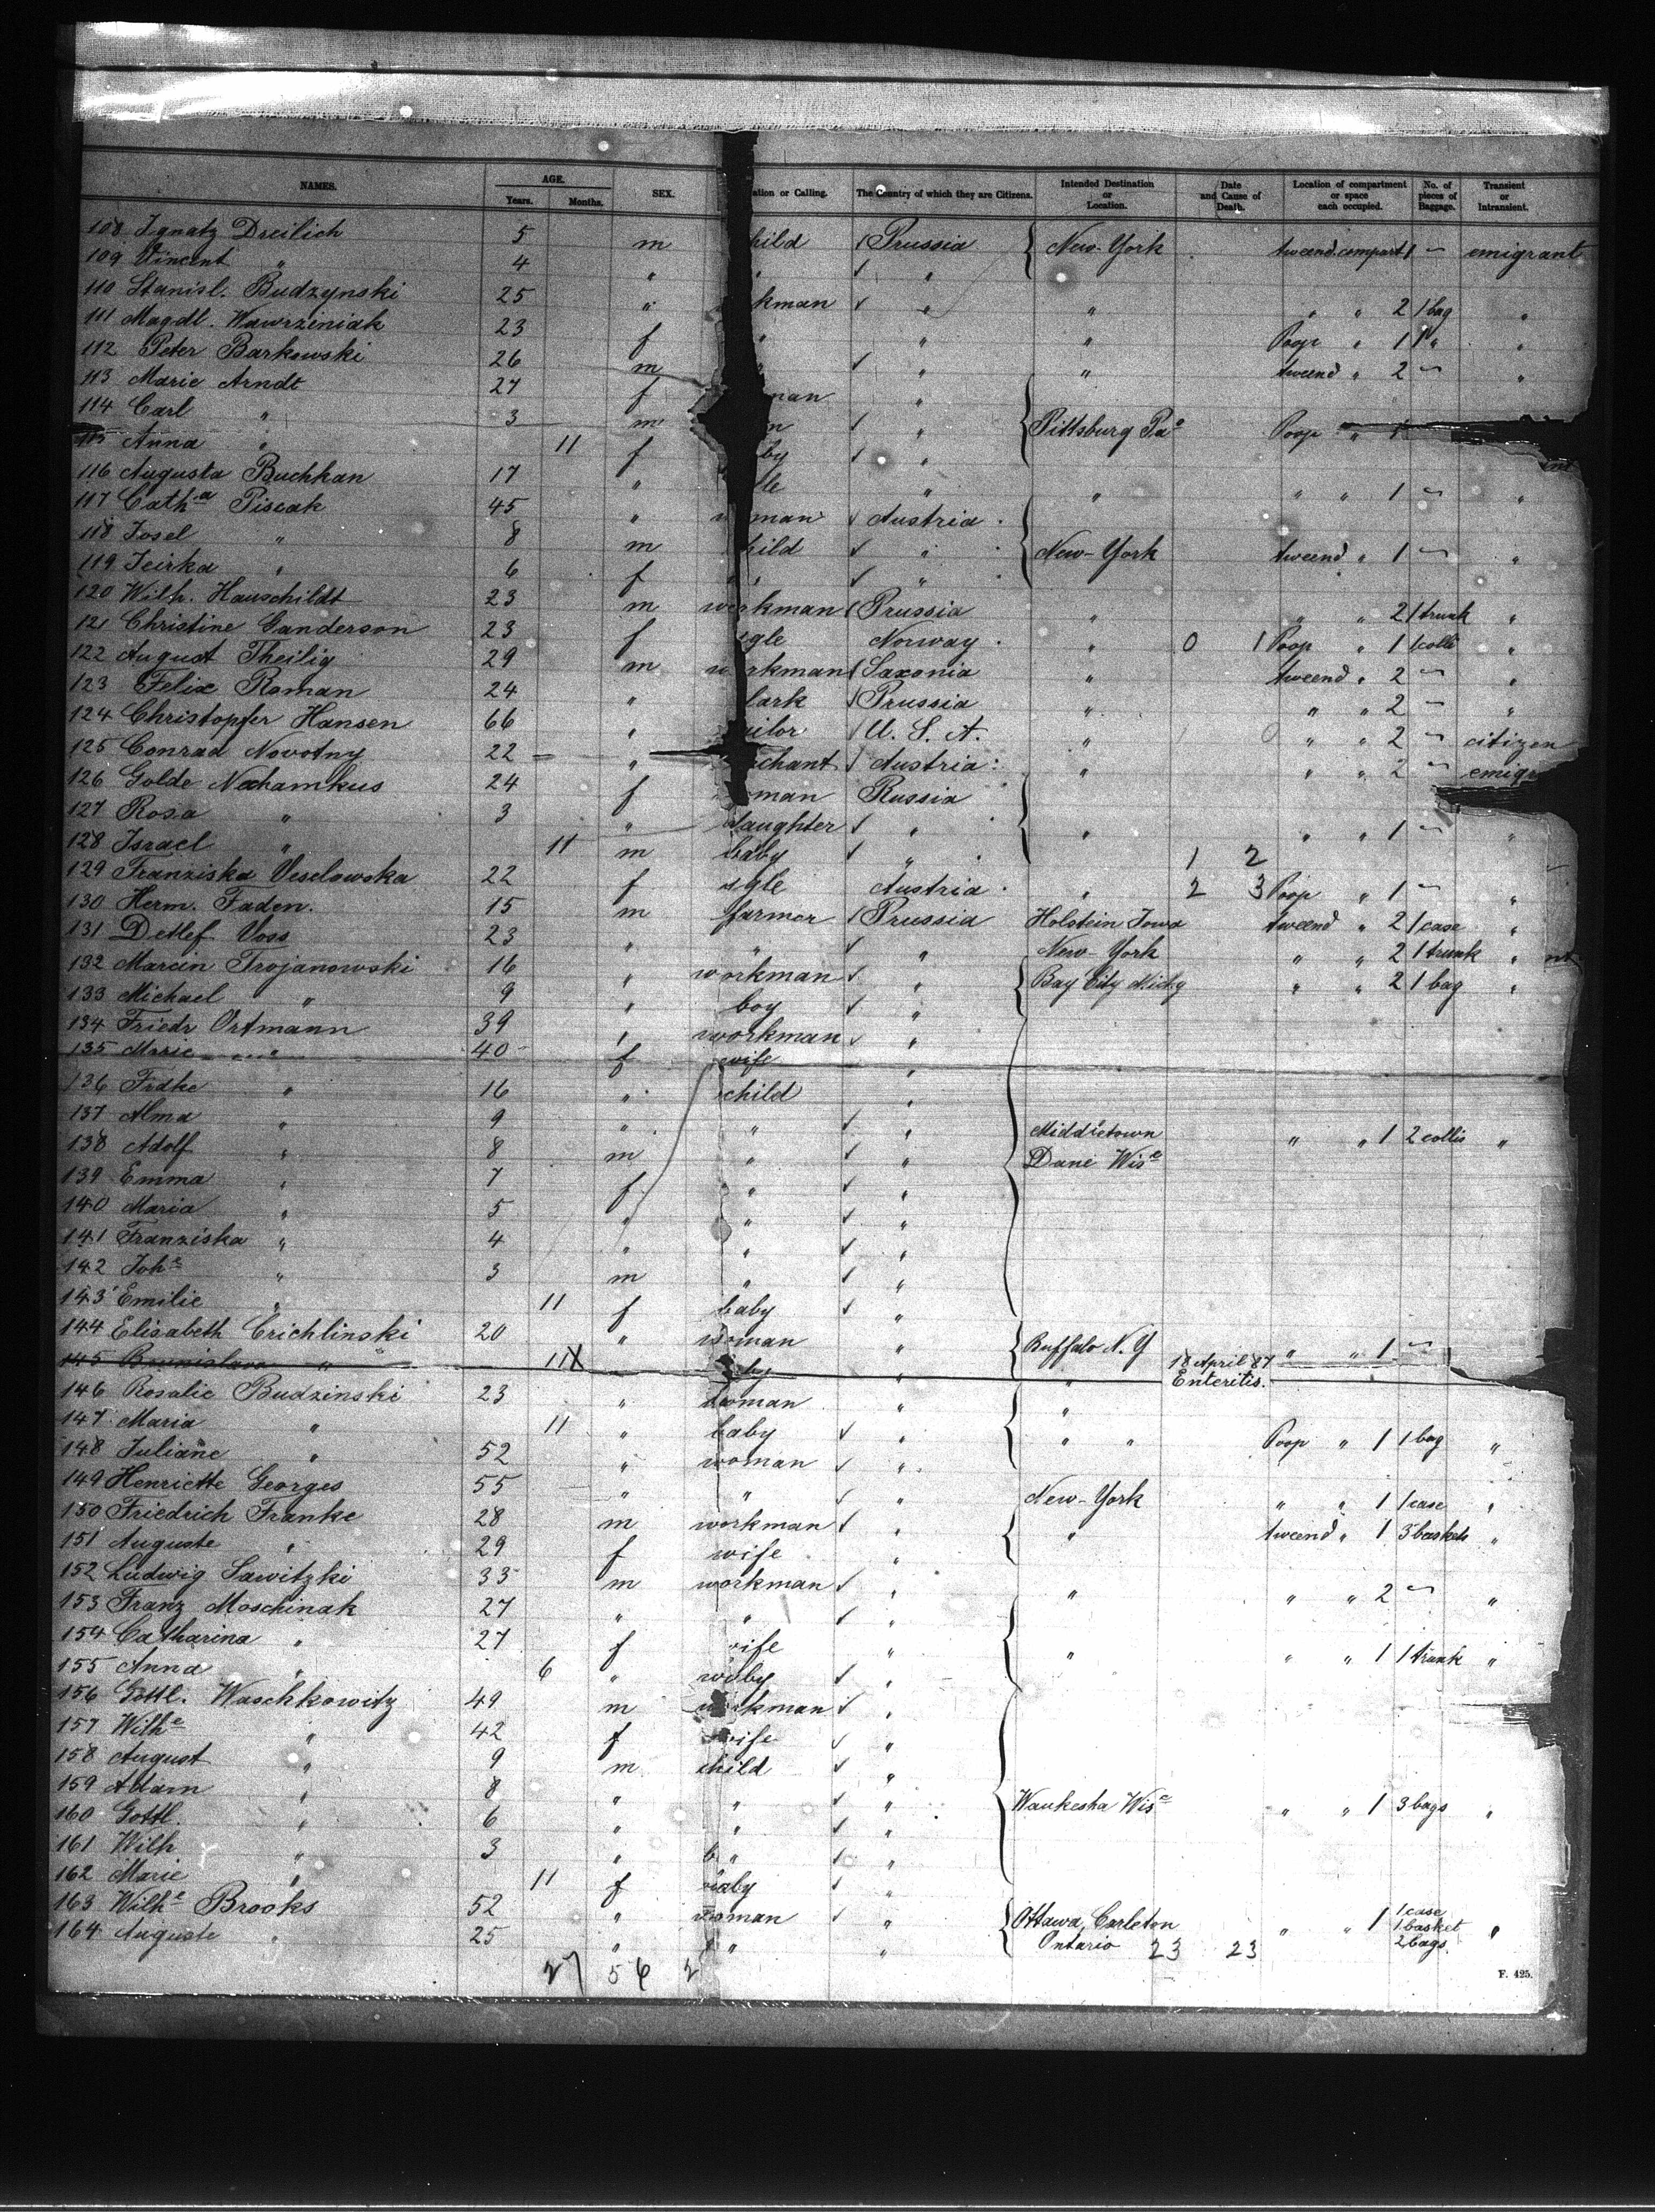 NAMES. AGE. Years. Months. SEX. ation or Calling. The Country of which they are Citizens. Intended Destination or Location. Date and Cause of Death. Location of compartment or space each occupied. No. of pieces of Baggage. Transient or Intransient.
108 Ignatz Dreilich 5 m hild Prussia New-York tweend. compart 1 — emigrant
109 Vincent " 4 " " "
110 Stanisl. Budzynski 25 " kman " " " " 2 1 bag "
111 Magdl. Wawrziniak 23 f " " " Poop " 1 1 " "
112 Peter Barkowski 26 m " " " tweend " 2 — "
113 Marie Arndt 27 f man "
114 Carl " 3 m n " Pittsburg Pa Poop " 1
115 Anna " 11 f by "
116 Augusta Buchkan 17 " le " " " " 1 — "
117 Catha Piscak 45 " man Austria
118 Josel " 8 m hild " New-York tweend " 1 — "
119 Jeirka " 6 f " "
120 Wilh. Hauschildt 23 m workman Prussia " " " 2 1 trunk "
121 Christine Ganderson 23 f gle Norway " 0 1 Poop " 1 1 colli "
122 August Theilig 29 m workman Saxonia " tweend " 2 — "
123 Felix Roman 24 " lark Prussia " " " 2 — "
124 Christopfer Hansen 66 " ilor U. S. A. " " " 2 — citizen
125 Conrad Novotny 22 " chant Austria " " " 2 — emigr
126 Golde Nachamkus 24 f oman Russia
127 Rosa " 3 " daughter " " " " 1 — "
128 Israel " 11 m baby " 1 2
129 Franziska Veselowska 22 f sgle Austria " 2 3 Poop " 1 — "
130 Herm. Faden. 15 m farmer Prussia Holstein Iowa tweend " 2 1 case "
131 Detlef Voss 23 " " " New-York " " 2 1 trunk "
132 Marcin Trojanowski 16 " workman " Bay City Mich " " 2 1 bag "
133 Michael " 9 " boy "
134 Friedr Ortmann 39 " workman "
135 Marie " 40 f wife "
136 Frdke " 16 " child "
137 Alma " 9 " " " Middletown " " 1 2 collis "
138 Adolf " 8 m " " Dane Wisc
139 Emma " 7 f " "
140 Maria " 5 " " "
141 Franziska " 4 " " "
142 Johs " 3 m " "
143 Emilie " 11 f baby "
144 Elisabeth Crichlinski 20 " woman " Buffalo N. Y " " 1 —
145 Brunislava " 11 X by " " 18 April 87 Enteritis.
146 Rosalie Budzinski 23 " woman " "
147 Maria " 11 " baby " " " Poop " 1 1 bag "
148 Juliane " 52 " woman "
149 Henriette Georges 55 " " " New-York " " 1 1 case "
150 Friedrich Franke 28 m workman " " tweend " 1 3 baskets "
151 Auguste " 29 f wife "
152 Ludwig Sawitzki 33 m workman " " " " 2 — "
153 Franz Moschinak 27 " " "
154 Catharina " 27 f wife " " " " 1 1 trunk "
155 Anna " 6 " by "
156 Gottl. Waschkowitz 49 m workman "
157 Wilhe " 42 f wife "
158 August " 9 m child "
159 Adam " 8 " " " Waukesha Wisc " " 1 3 bags "
160 Gottl. " 6 " " "
161 Wilh " 3 " " "
162 Marie " 11 f baby "
163 Wilhe Brooks 52 " woman " Ottawa, Carleton " " 1 1 case 1 basket "
164 Auguste " 25 " " " Ontario 23 23 2 bags.
27 56 2
F. 425.